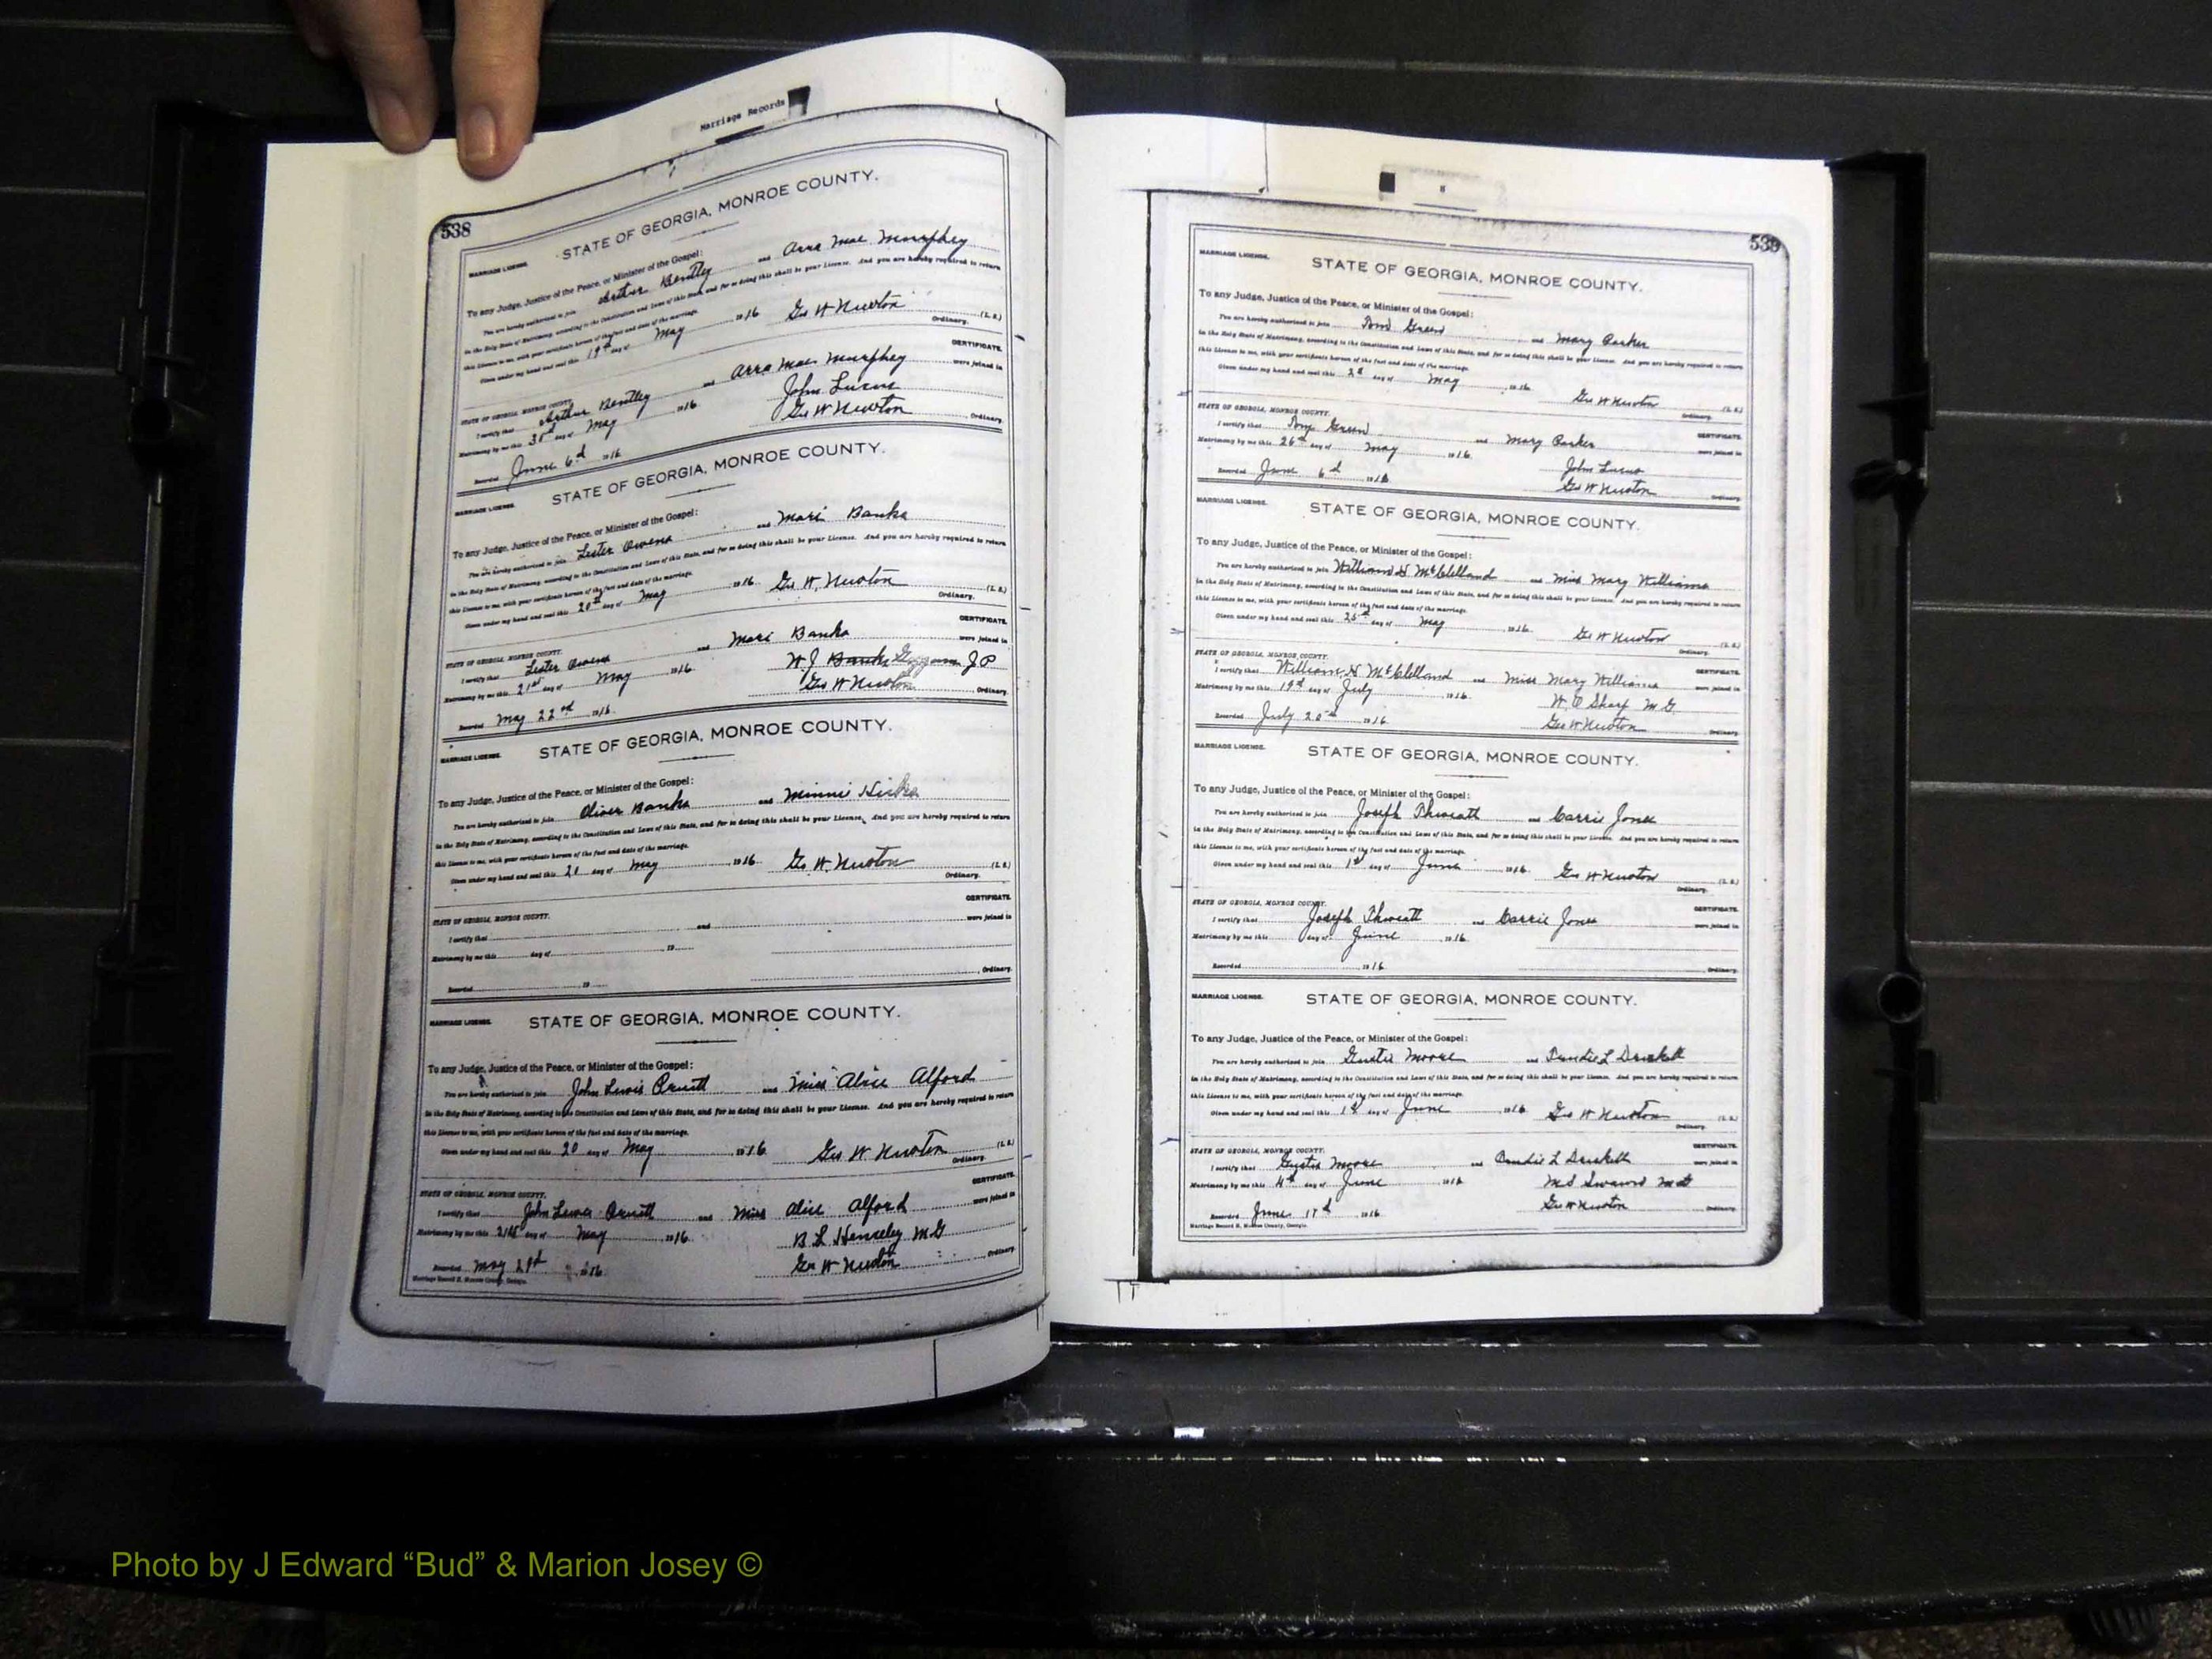 Marriage Records
538
STATE OF GEORGIA, MONROE COUNTY.
MARRIAGE LICENSE.
To any Judge, Justice of the Peace, or Minister of the Gospel:
You are hereby authorized to join Arthur Bently and Arra Mae Murphey
in the Holy State of Matrimony, according to the Constitution and Laws of this State, and for so doing this shall be your License. And you are hereby required to return
this License to me, with your certificate hereon of the fact and date of the marriage.
Given under my hand and seal this 19th day of May 1916 Geo W Newton (L. S.)
Ordinary.
CERTIFICATE.
STATE OF GEORGIA, MONROE COUNTY.
I certify that Arthur Bentley and Arra Mae Murphey were joined in
Matrimony by me this day of May 1916. John Lucus
Geo W Newton Ordinary.
Recorded June 6d 1916
STATE OF GEORGIA, MONROE COUNTY.
MARRIAGE LICENSE.
To any Judge, Justice of the Peace, or Minister of the Gospel:
You are hereby authorized to join Lester Owens and Mari Banks
in the Holy State of Matrimony, according to the Constitution and Laws of this State, and for so doing this shall be your License. And you are hereby required to return
this License to me, with your certificate hereon of the fact and date of the marriage.
Given under my hand and seal this 20th day of May 1916 Geo W. Newton (L. S.)
Ordinary.
CERTIFICATE.
STATE OF GEORGIA, MONROE COUNTY.
I certify that Lester Owens and Mari Banks were joined in
Matrimony by me this 21st day of May 1916 W J Banks J P
Geo W Newton Ordinary.
Recorded May 22nd 1916.
STATE OF GEORGIA, MONROE COUNTY.
MARRIAGE LICENSE.
To any Judge, Justice of the Peace, or Minister of the Gospel:
You are hereby authorized to join Oliver Banks and Minnie Hicks
in the Holy State of Matrimony, according to the Constitution and Laws of this State, and for so doing this shall be your License. And you are hereby required to return
this License to me, with your certificate hereon of the fact and date of the marriage.
Given under my hand and seal this 20 day of May 1916 Geo W. Newton (L. S.)
Ordinary.
CERTIFICATE.
STATE OF GEORGIA, MONROE COUNTY.
I certify that and were joined in
Matrimony by me this day of 19
Ordinary.
Recorded 19
MARRIAGE LICENSE. STATE OF GEORGIA, MONROE COUNTY.
To any Judge, Justice of the Peace, or Minister of the Gospel:
You are hereby authorized to join John Lewis Pruitt and Miss Alice Alford
in the Holy State of Matrimony, according to the Constitution and Laws of this State, and for so doing this shall be your License. And you are hereby required to return
this License to me, with your certificate hereon of the fact and date of the marriage.
Given under my hand and seal this 20 day of May 1916 Geo W Newton (L. S.)
Ordinary.
CERTIFICATE.
STATE OF GEORGIA, MONROE COUNTY.
I certify that John Lewis Pruitt and Miss Alice Alford were joined in
Matrimony by me this 21st day of May 1916 B L Henseley M G
Geo W Newton Ordinary
Recorded May 1916
Marriage Record H, Monroe County, Georgia.
539
MARRIAGE LICENSE. STATE OF GEORGIA, MONROE COUNTY.
To any Judge, Justice of the Peace, or Minister of the Gospel:
You are hereby authorized to join Tom Green and Mary Parker
in the Holy State of Matrimony, according to the Constitution and Laws of this State, and for so doing this shall be your License. And you are hereby required to return
this License to me, with your certificate hereon of the fact and date of the marriage.
Given under my hand and seal this day of May 1916
Geo W Newton (L. S.)
Ordinary.
STATE OF GEORGIA, MONROE COUNTY. CERTIFICATE.
I certify that Tom Green and Mary Parker were joined in
Matrimony by me this 26th day of May 1916 John Lucus
Recorded June 6d 1916 Geo W Newton Ordinary.
MARRIAGE LICENSE. STATE OF GEORGIA, MONROE COUNTY.
To any Judge, Justice of the Peace, or Minister of the Gospel:
You are hereby authorized to join William H McClelland and Miss Mary Williams
in the Holy State of Matrimony, according to the Constitution and Laws of this State, and for so doing this shall be your License. And you are hereby required to return
this License to me, with your certificate hereon of the fact and date of the marriage.
Given under my hand and seal this 25th day of May 1916 Geo W Newton (L. S.)
Ordinary.
STATE OF GEORGIA, MONROE COUNTY. CERTIFICATE.
I certify that William H McClelland and Miss Mary Williams were joined in
Matrimony by me this 19th day of July 1916. W. O Sharp M G.
Recorded July 20th 1916 Geo W Newton Ordinary.
MARRIAGE LICENSE. STATE OF GEORGIA, MONROE COUNTY.
To any Judge, Justice of the Peace, or Minister of the Gospel:
You are hereby authorized to join Joseph Thweatt and Carrie Jones
in the Holy State of Matrimony, according to the Constitution and Laws of this State, and for so doing this shall be your License. And you are hereby required to return
this License to me, with your certificate hereon of the fact and date of the marriage.
Given under my hand and seal this 1st day of June 1916 Geo W Newton (L. S.)
Ordinary.
STATE OF GEORGIA, MONROE COUNTY. CERTIFICATE.
I certify that Joseph Thweatt and Carrie Jones were joined in
Matrimony by me this day of June 1916
Recorded 1916 Ordinary.
MARRIAGE LICENSE. STATE OF GEORGIA, MONROE COUNTY.
To any Judge, Justice of the Peace, or Minister of the Gospel:
You are hereby authorized to join Gustis Moore and L
in the Holy State of Matrimony, according to the Constitution and Laws of this State, and for so doing this shall be your License. And you are hereby required to return
this License to me, with your certificate hereon of the fact and date of the marriage.
Given under my hand and seal this 1st day of June 1916 Geo W Newton (L. S.)
Ordinary.
STATE OF GEORGIA, MONROE COUNTY. CERTIFICATE.
I certify that Gustis Moore and L were joined in
Matrimony by me this 4th day of June 1916
Geo W Newton Ordinary.
Recorded June 1916
Marriage Record H, Monroe County, Georgia.
Photo by J Edward “Bud” & Marion Josey ©